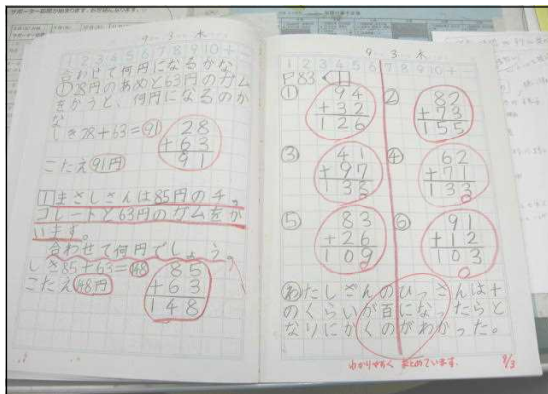 9 3 木
1 2 3 4 5 6 7 8 9 10 + −
合わせて何円になるかな
① 28円のあめと63円のガム
をかうと、何円になるのか
な
しき28+63=91
こたえ91円
28
+63
91
1 まさしさんは85円のチョ
コレートと63円のガムをか
います。
合わせて何円でしょう。
しき85+63=148
こたえ148円
85
+63
148
9 3 木
1 2 3 4 5 6 7 8 9 10 + −
P83 1
① 94
+32
126
② 82
+73
155
③ 41
+97
138
④ 62
+71
133
⑤ 83
+26
109
⑥ 91
+12
103
わ たしざんのひっさんは十
のくらいが百になったらと
なりにかくのがわかった。
わかりやすく まとめています。
9/3